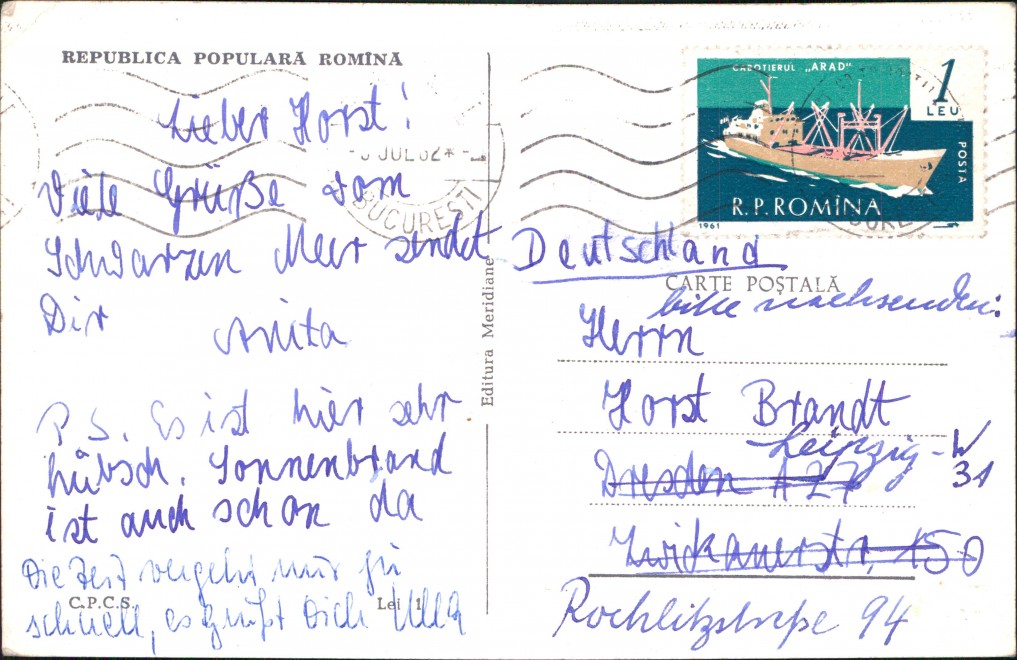 REPUBLICA POPULARĂ ROMÎNĂ
Lieber Horst!
Viele Grüße vom
Schwarzen Meer sendet
Dir
Anita
P.S. Es ist hier sehr
hübsch. Sonnenbrand
ist auch schon da
Die Zeit vergeht nur zu
schnell, es grüßt Dich Ulla
C.P.C.S.
Lei 1
Editura Meridiane
JUL 62
BUCUREȘTI
CABOTIERUL „ARAD"
1
LEU
POSTA
R.P. ROMÎNA
1961
Deutschland
CARTE POȘTALĂ
bitte nachsenden:
Herrn
Horst Brandt
Leipzig-W
31
Dresden A 27
Zwickauerstr. 150
Rochlitzstraße 94